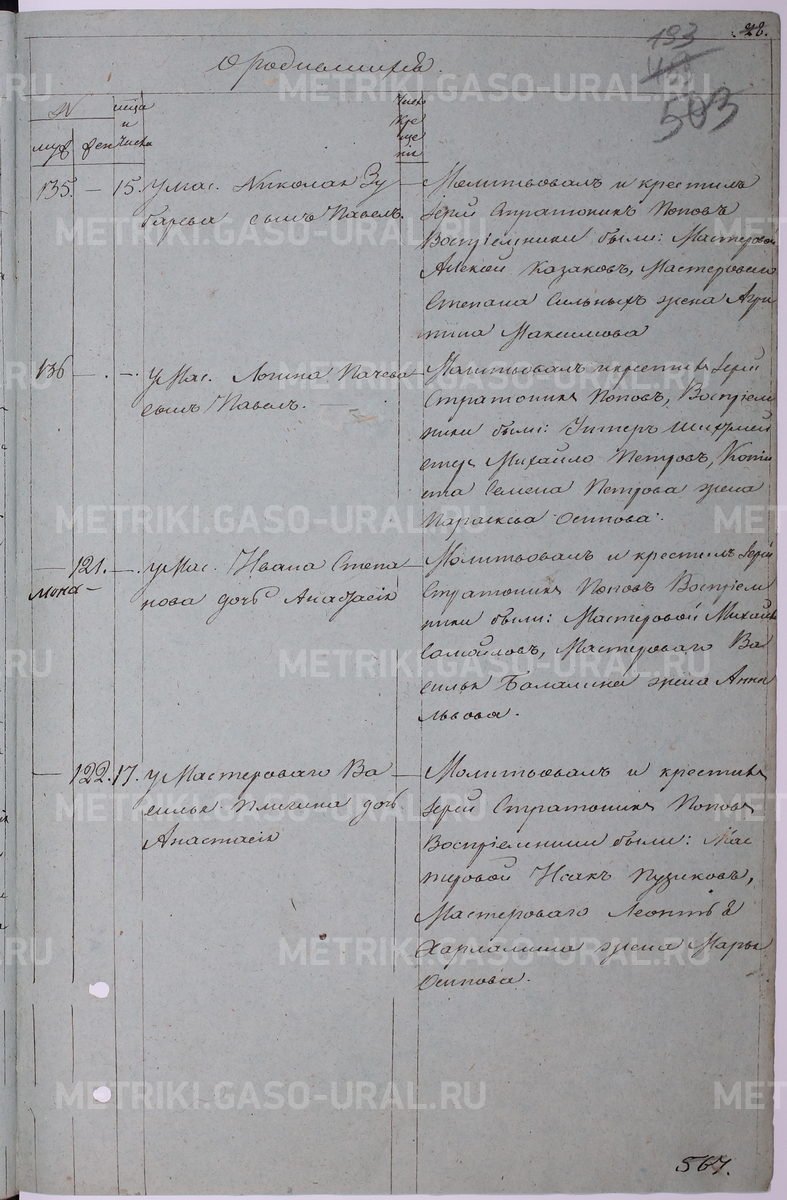 28.
193
503
О родившихся.
№
месяца
и
числа
муж
жен
Число
кре
ще
нія
135. — 15. У мас. Николая Зу
барева сынъ Павелъ.
Молитвовалъ и крестилъ
Іерей Стратоникъ Поповъ
Воспріемники были: Мастеровой
Алексей Казаковъ, Мастероваго
Степана Сильныхъ жена Агри
пина Максимова
136 — . — . У Мас. Логина Пачева
сынъ Павелъ.
Молитвовалъ и крестилъ Іерей
Стратоникъ Поповъ, Воспріем
ники были: Унтеръ Шихтмей
стеръ Михайло Петровъ, Копіи
ста Семена Петрова жена
Параскева Осипова.
— 121. — . У Мас. Ивана Степа
нова дочь Анастасія
Молитвовалъ и крестилъ Іерей
Стратоникъ Поповъ Воспріем
ники были: Мастеровой Михайло
Самойловъ, Мастероваго Ва
силья Баламина жена Анна
Львова.
— 122. 17. У Мастероваго Ва
силья Пличина дочь
Анастасія
Молитвовалъ и крестилъ
Іерей Стратоникъ Поповъ
Воспріемники были: Мас
теровой Исакъ Пузиковъ,
Мастероваго Леонтья
Харламина жена Марья
Осипова.
567.
METRIKI.GASO-URAL.RU